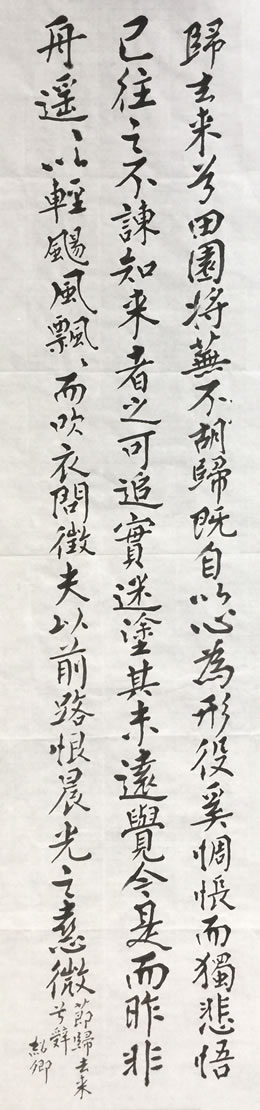 歸去来兮田園将蕪不胡歸既自以心為形役奚惆悵而獨悲悟
已往之不諫知来者之可追實迷塗其未遠覺今是而昨非
舟遥〻以輕颺風飄〻而吹衣問徵夫以前路恨晨光之熹微
節歸去来
兮辭